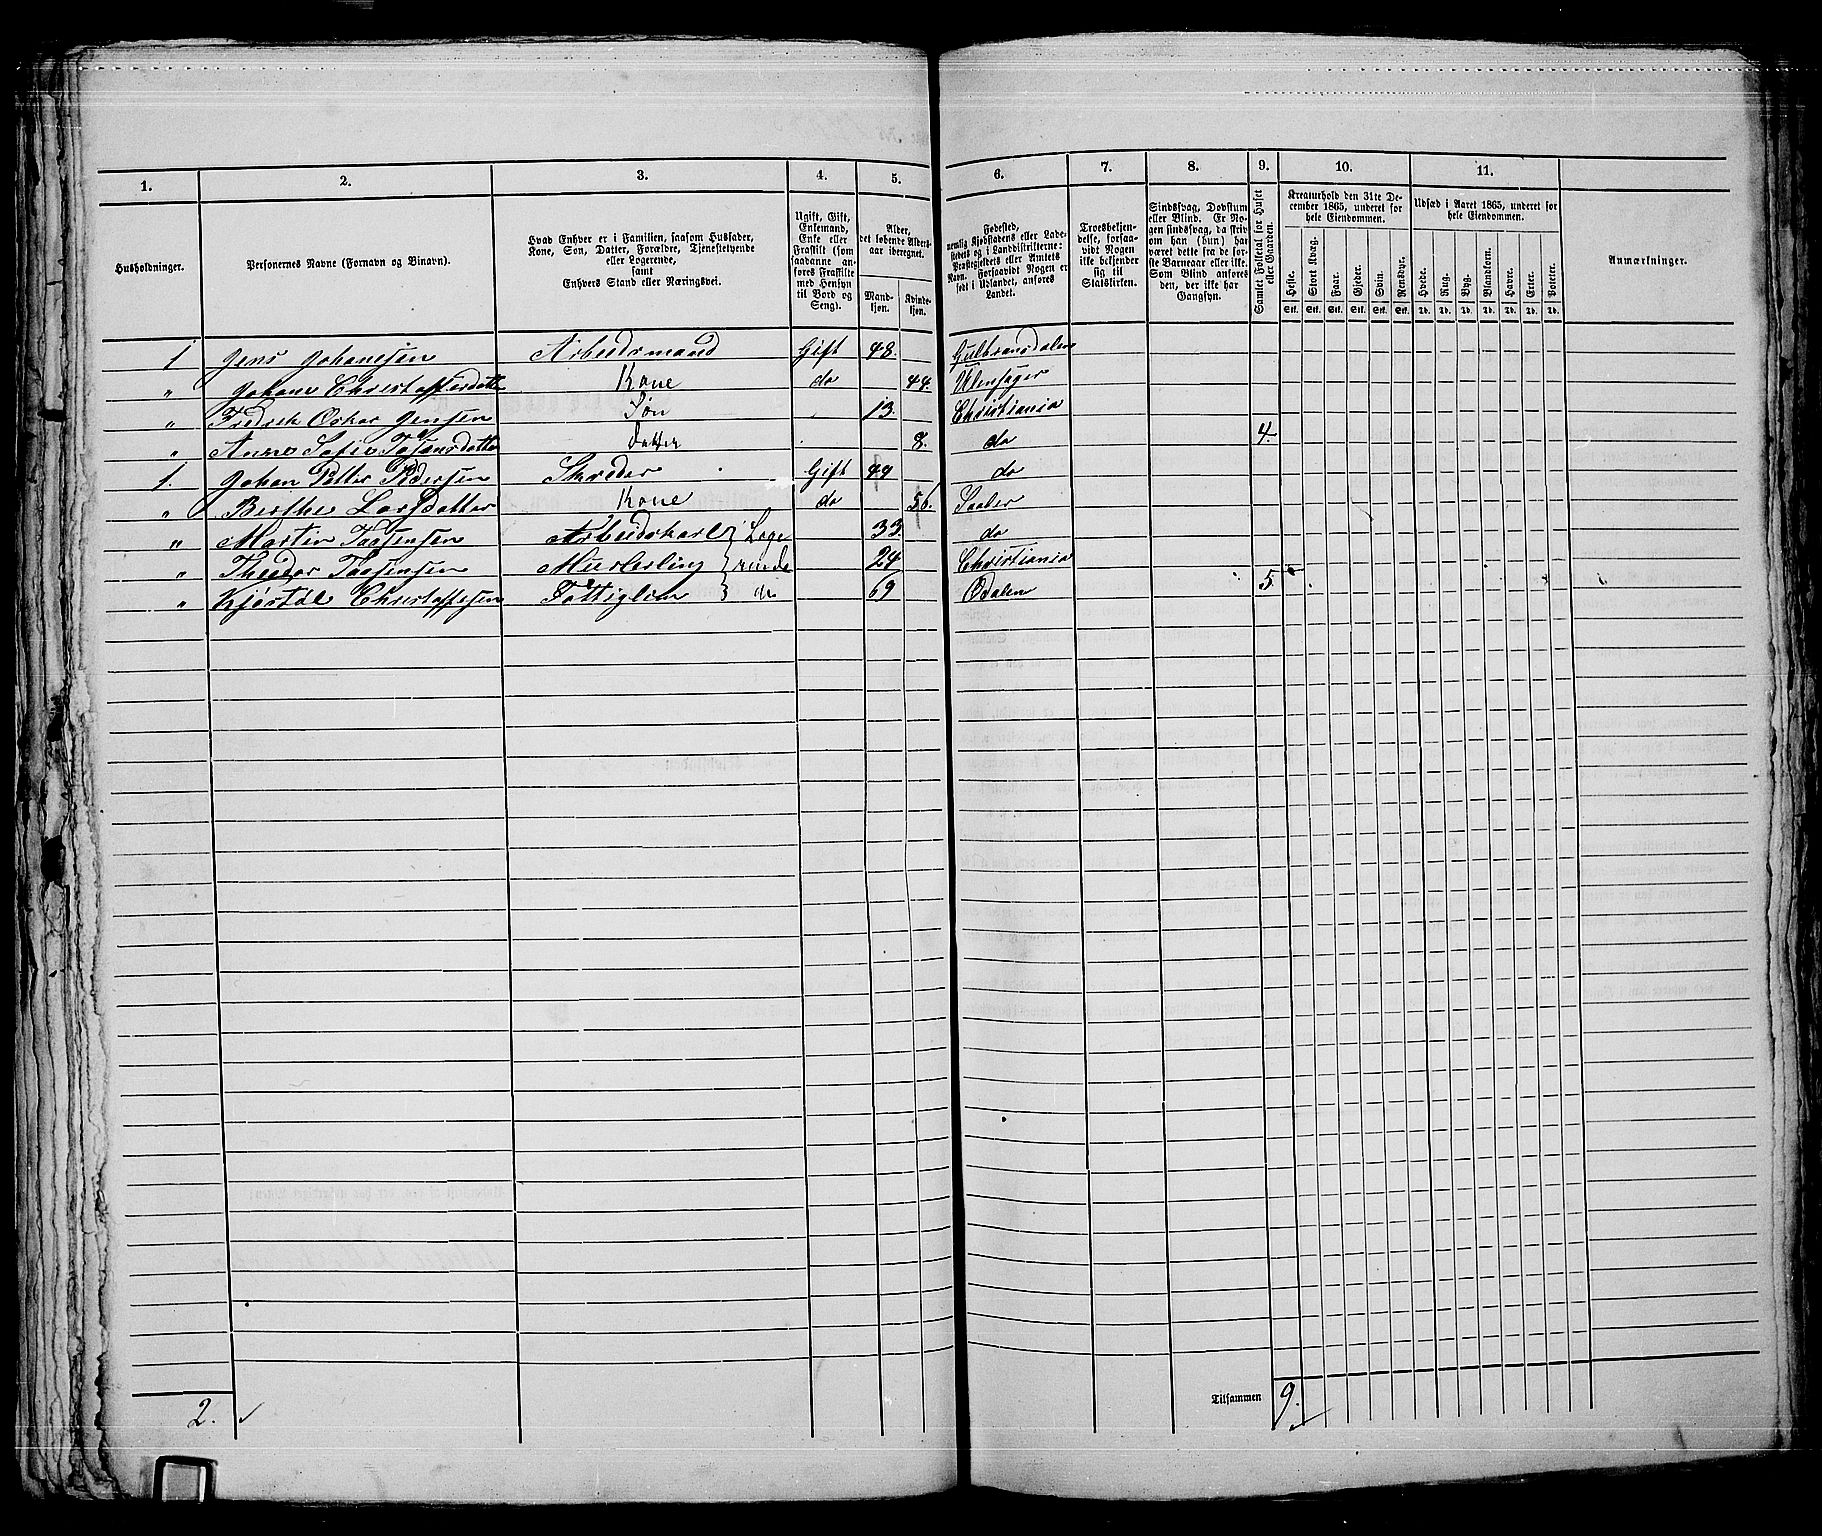 1. 2. 3. 4. 5. 6. 7. 8. 9. 10. 11.
Husholdninger.
Personernes Navne (Fornavn og Binavn).
Hvad Enhver er i Familien, saasom Husfader,
Kone, Søn, Datter, Forældre, Tjenestetyende
eller Logerende,
samt
Enhvers Stand eller Næringsvei.
Ugift, Gift,
Enkemand,
Enke eller
Fraskilt (som
saadanne an-
føres Fraskilte
med Hensyn
til Bord og
Seng).
Alder,
det løbende Alders-
aar iberegnet.
Mand-
kjøn.
Kvinde-
kjøn.
Fødested,
nemlig Kjøbstadens eller Lade-
stedets og i Landdistrikterne:
Præstegjeldets eller Amtets
Navn. Forsaavidt Nogen er
født i Udlandet, anføres
Landet.
Troesbekjen-
delse, forsaa-
vidt Nogen
ikke bekjender
sig til
Statskirken.
Sindssvag, Døvstum
eller Blind. Er No-
gen sindssvag, da skriv
om han (hun) har
været dette fra de før-
ste Barneaar eller ikke.
Som Blind anføres
den, der ikke har
Gangsyn.
Samlet Folketal for Huset
eller Gaarden.
Kreaturhold den 31te De-
cember 1865, underet for
hele Eiendommen.
Heste. Stort Kvæg. Faar. Gjeder. Svin. Rensdyr.
Stk. Stk. Stk. Stk. Stk. Stk.
Udsæd i Aaret 1865, underet for
hele Eiendommen.
Hvede. Rug. Byg. Blandkorn. Havre. Erter. Poteter.
Td. Td. Td. Td. Td. Td. Td.
Anmærkninger.
1 Jens Johanesen Arbeidsmand Gift 48. Gulbransdalen
" Johane Christoffersdatter Kone do 44. Ulensager
" Fredrik Oskar Jensen Søn 13. Christiania
" Anne Sofie datter 8. do 4.
1. Johan Petter Pedersen Skreder Gift 44 do
" Berthe Larsdatter Kone do 56. Saaber
" Martin Taasensen Arbeidskarl } Loge 33. do
" Theodor Taasensen Murlerling } rende 24 Christiania
" Christoffesen Fattiglem } do 69 Odalen 5.
2. Tilsammen 9.